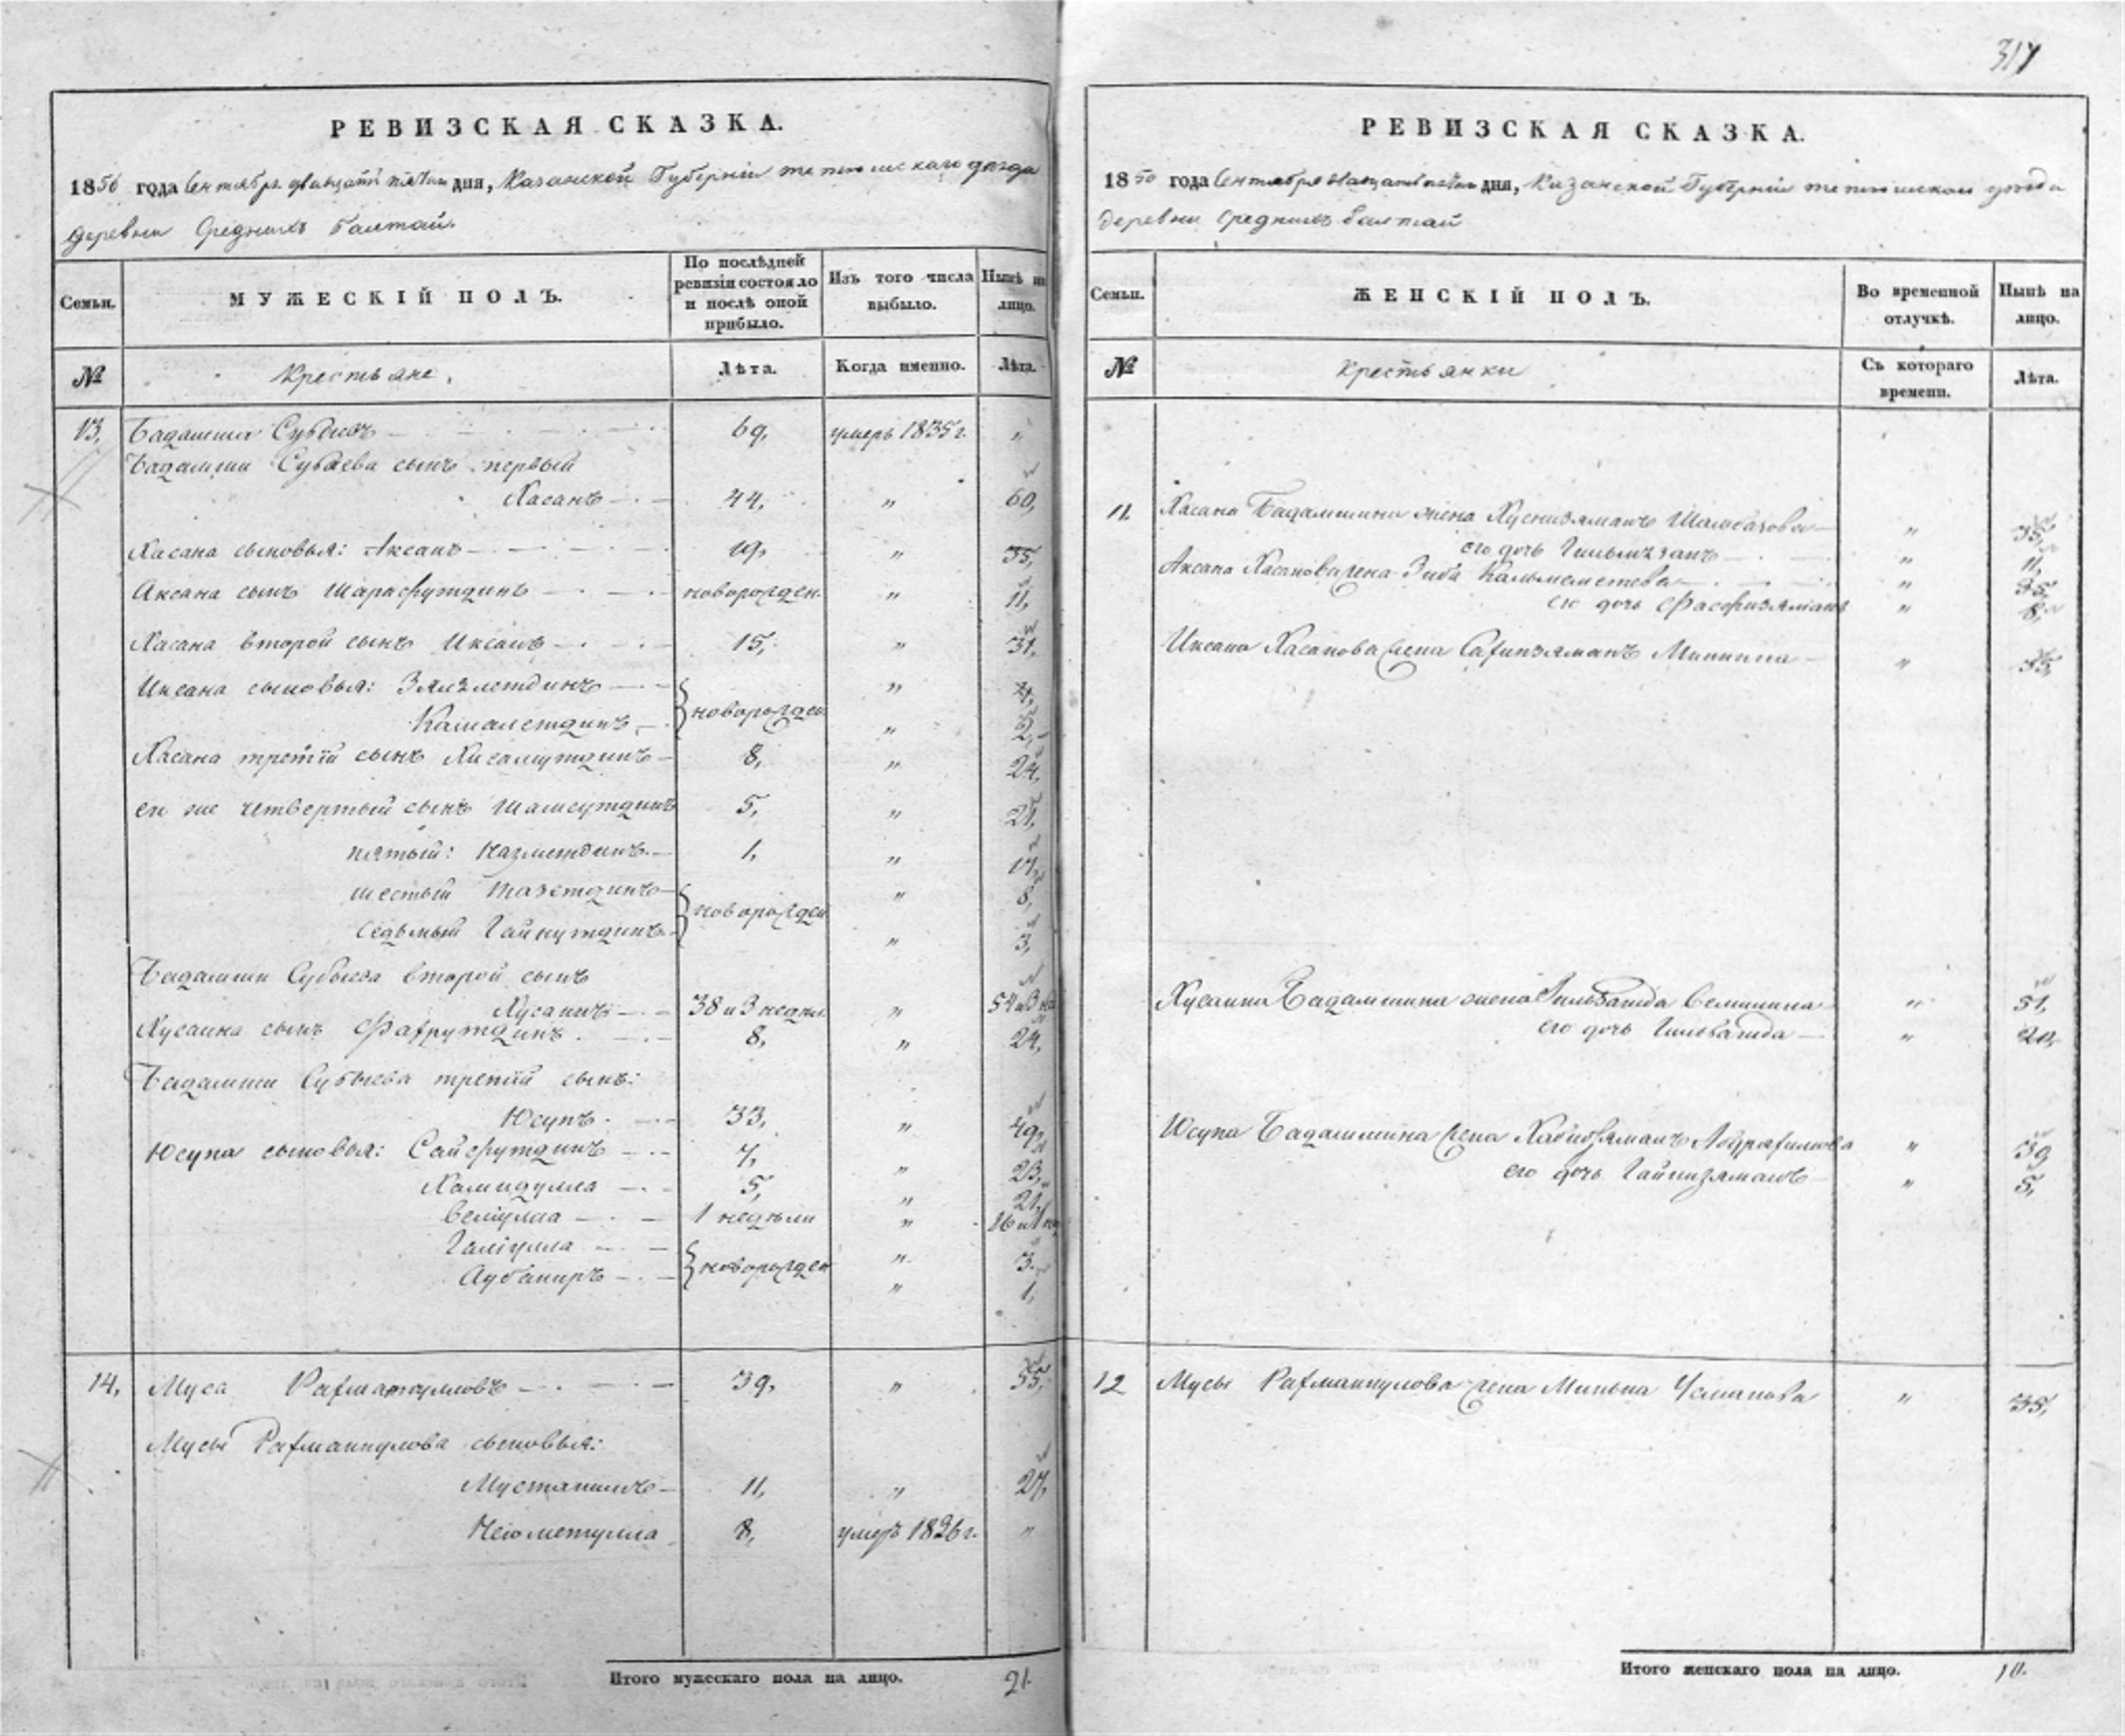 317
РЕВИЗСКАЯ СКАЗКА.
1850 года Сентября двадцать пятаго дня, Казанской Губерніи тетюшскаго уезда
деревни Среднихъ Балтай.
Семьи.
МУЖЕСКІЙ ПОЛЪ.
По послѣдней ревизіи состояло и послѣ оной прибыло.
Изъ того числа выбыло.
Нынѣ на лицо.
№
Крестьяне.
Лѣта.
Когда именно.
Лѣта.
13, Бадамша Субаевъ 69, умеръ 1835 г. "
Бадамши Субаева сынъ первый
Хасанъ 44, " 60,
Хасана сыновья: Аксанъ 19, " 35,
Аксана сынъ Шарафутдинъ новорожден. " 11,
Хасана второй сынъ Иксанъ 15, " 31,
Иксана сыновья: Зялялетдинъ новорожден. " 4,
Камалетдинъ " 2,
Хасана третій сынъ Хисамутдинъ 8, " 24,
ево же четвертый сынъ Шамсутдинъ 5, " 21,
пятый: Назметдинъ 1, " 17,
шестый Тазетдинъ новорожден " 8,
Седьмый Гайнутдинъ " 3,
Бадамши Субаева второй сынъ
Хусаинъ 38 и 3 недели " 54 и 3 не
Хусаина сынъ Фахрутдинъ 8, " 24,
Бадамши Субаева третій сынъ:
Юсупъ 33, " 49,
Юсупа сыновья: Сайфутдинъ 7, " 23,
Хамидулла 5, " 21,
Велиулла 1 недели " 16 и 1 не
Галиулла новорожден " 3
Аубакиръ " 1,
14, Муса Рахманкуловъ 39, " 55,
Мусы Рахманкулова сыновья:
Мустакимъ 11, " 27,
Неюметулла 8, умеръ 1836 г. "
Итого мужескаго пола на лицо. 21.
РЕВИЗСКАЯ СКАЗКА.
1850 года Сентября двадцать пятаго дня, Казанской Губерніи тетюшскаго уезда
деревни Среднихъ Балтай
Семьи.
ЖЕНСКІЙ ПОЛЪ.
Во временной отлучкѣ.
Нынѣ на лицо.
№
Крестьянки
Съ котораго времени.
Лѣта.
11. Хасана Бадамшина жена Хуснизяманъ Шамбазова " 35,
его дочь " 11,
Аксана Хасанова жена Зиба Кальметева " 35,
его дочь " 8,
Иксана Хасанова жена " 35,
Хусаина Бадамшина жена " 51,
его дочь Гильвагида " 20,
Юсупа Бадамшина жена Хабибзяманъ " 39
его дочь Гайнизяманъ " 5,
12 Мусы Рахманкулова жена Миньна Усманова " 35,
Итого женскаго пола на лицо. 10.